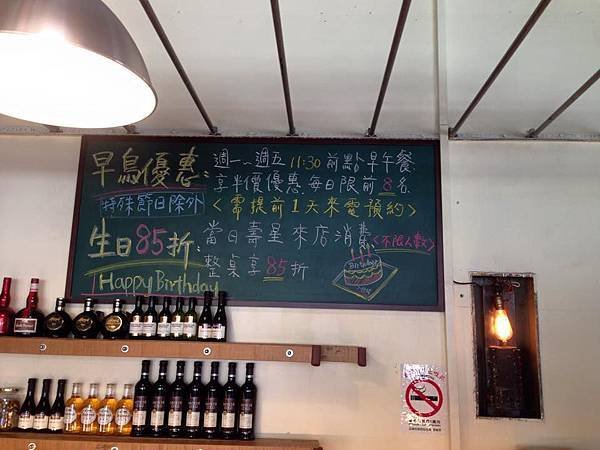 早鳥優惠: 週一~週五 11:30 前點早午餐
特殊節日除外 享半價優惠. 每日限前8名
<需提前1天來電預約>
生日85折: 當日壽星來店消費 <不限人數>
整桌享85折
Happy Birthday